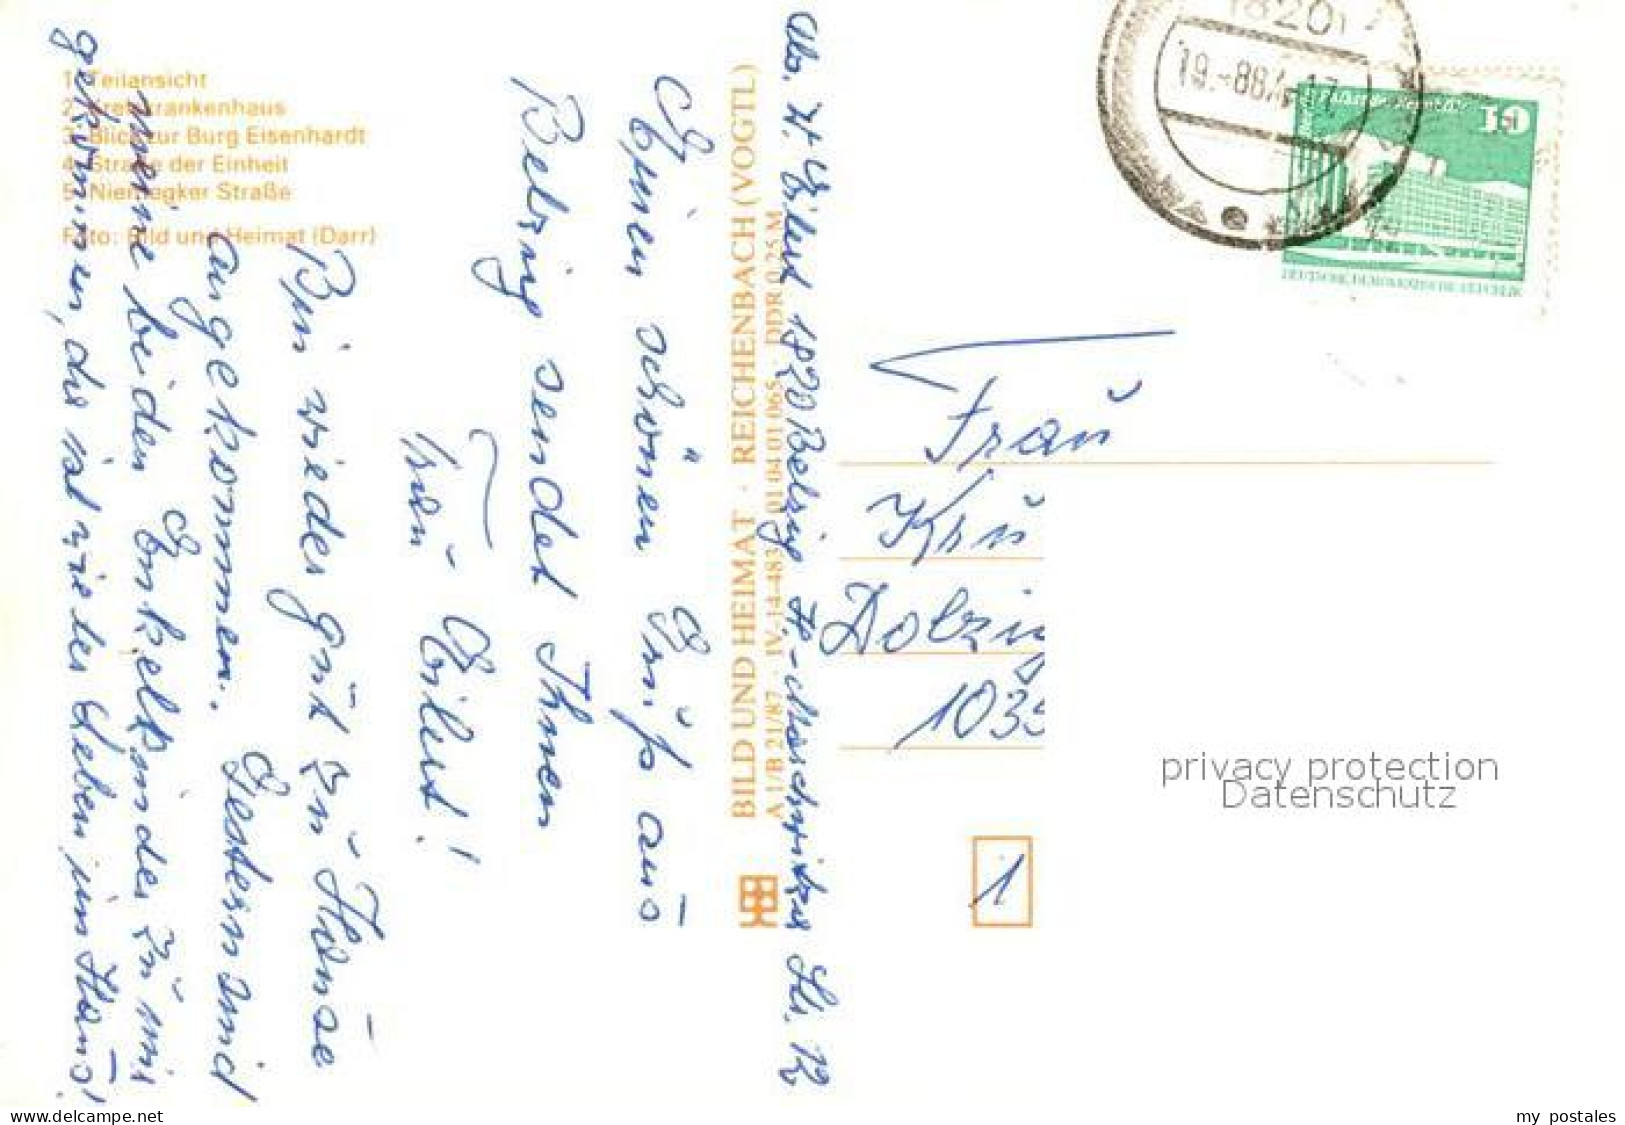 1. Teilansicht
2. Kreiskrankenhaus
3. Blick zur Burg Eisenhardt
4. Straße der Einheit
5. Niemegker Straße
Foto: Bild und Heimat (Darr)
Einen schönen Gruß aus
Belzig sendet Ihnen
Frau Eilert!
Bin wieder gut zu Hause
angekommen. Gestern sind
meine beiden Enkelkinder zu mir
gekommen, da ist wieder Leben im Haus!
BILD UND HEIMAT · REICHENBACH (VOGTL)
A 1/B 21/87 · IV-14-483 01 04 01 065 · DDR 0,25 M
Abs. H. Eilert 1820 Belzig, H.-Marchwitza Str. 12
1820
19.-8.88-17
10
DEUTSCHE DEMOKRATISCHE REPUBLIK
Frau
Krü
Dolzig
1035
privacy protection
Datenschutz
1
www.delcampe.net
my_postales